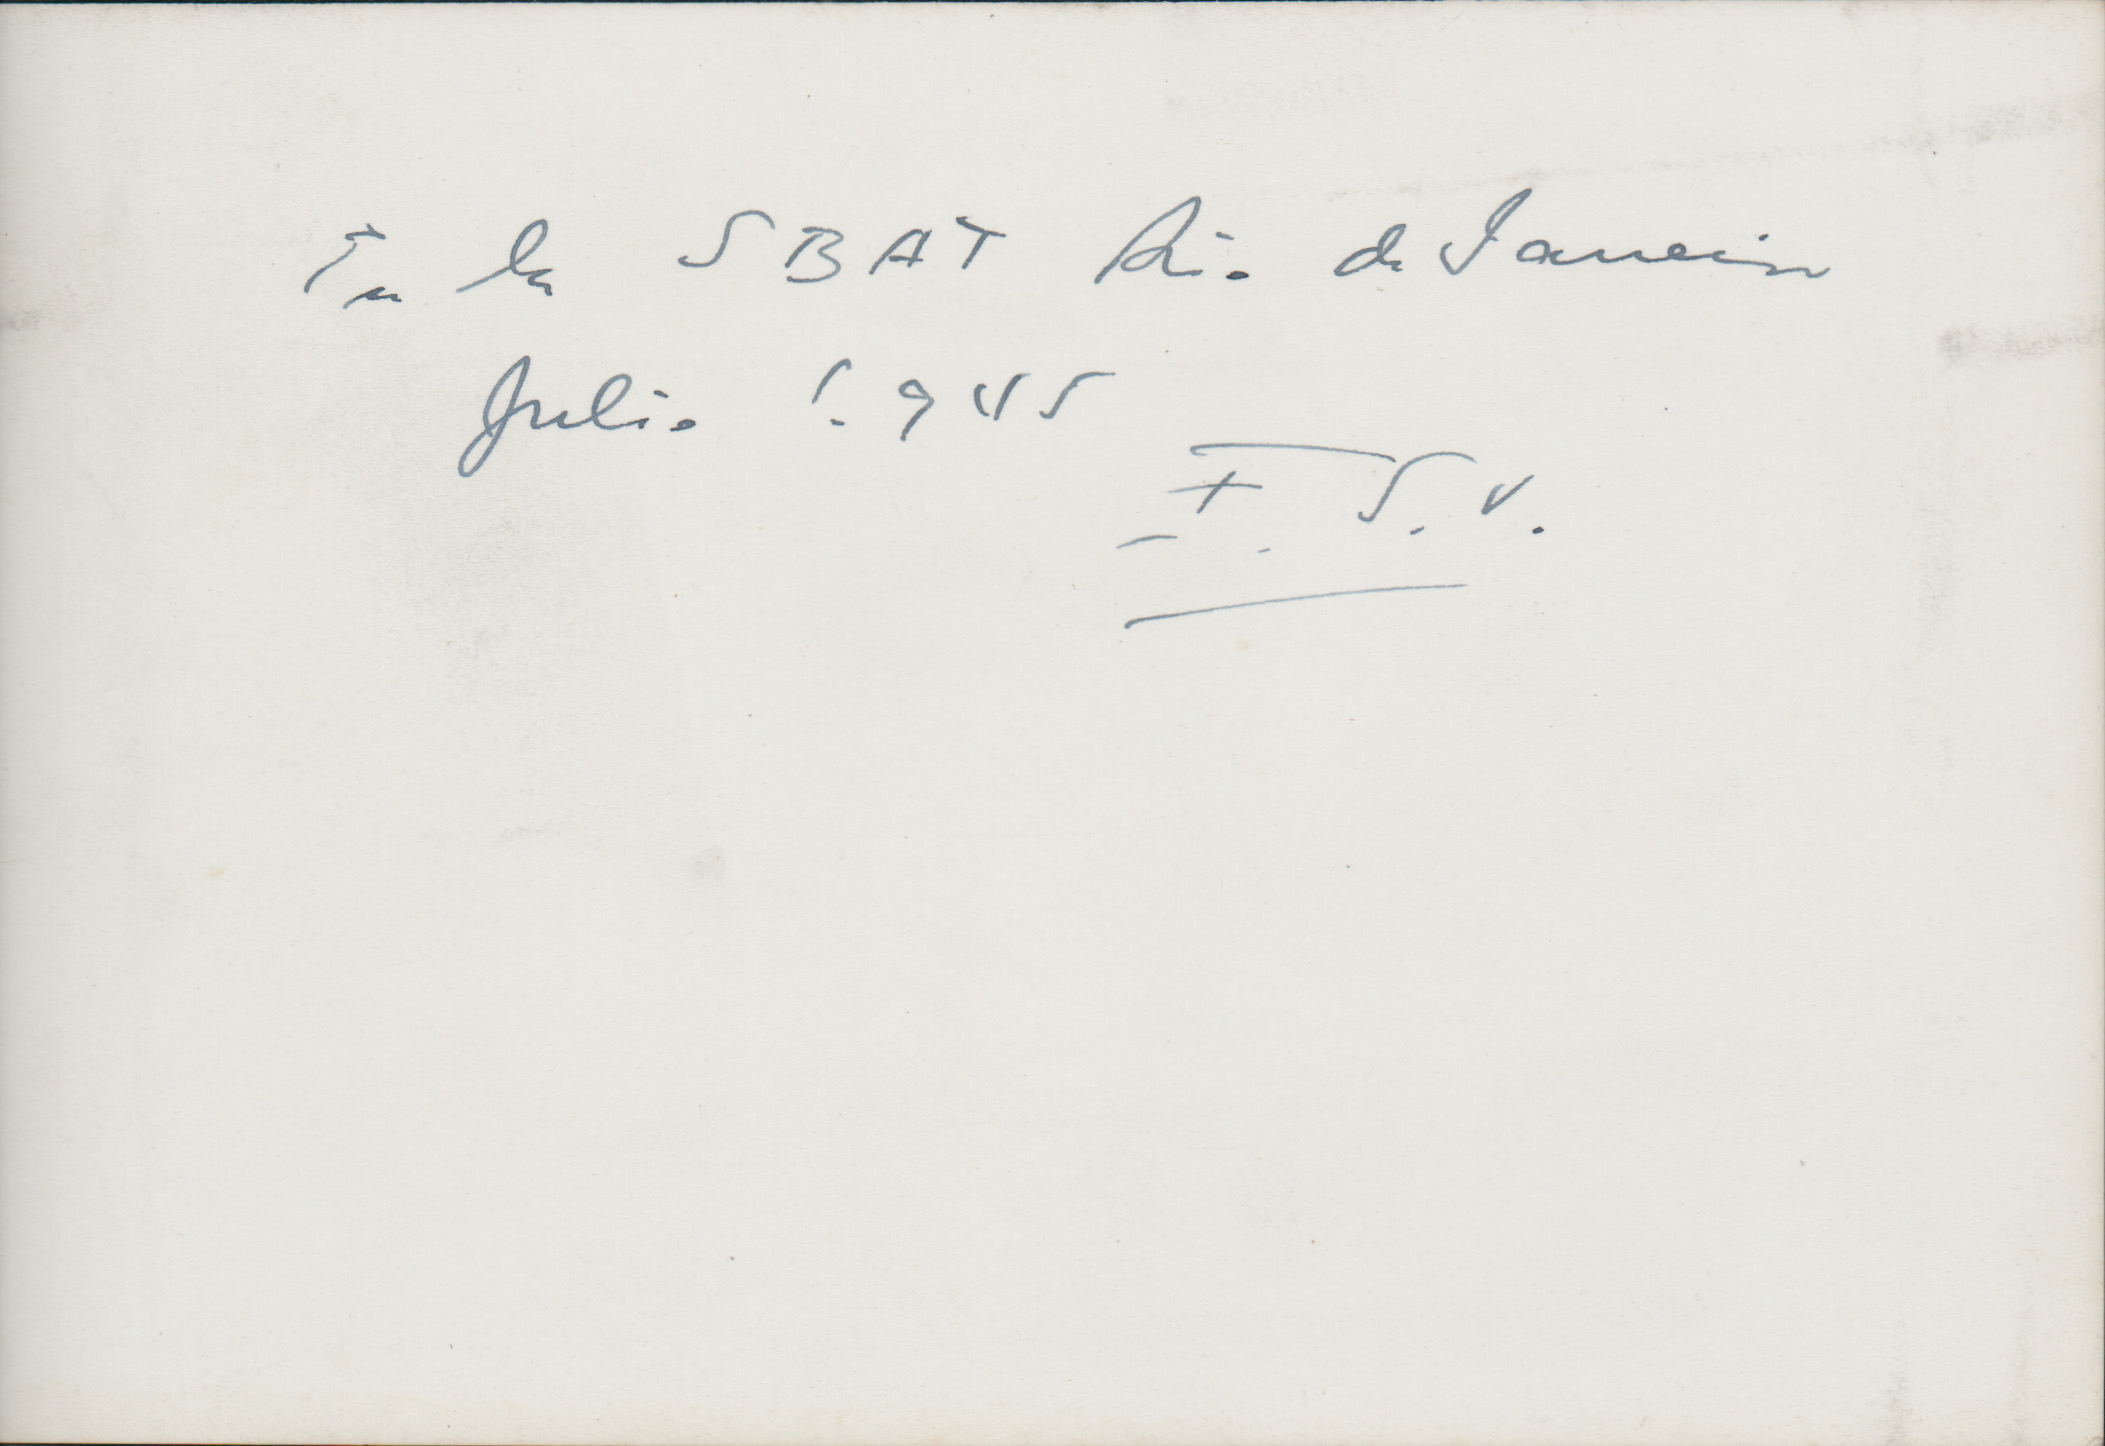 En la SBAT Rio de Janeiro
Julio 1.945
F. S. V.